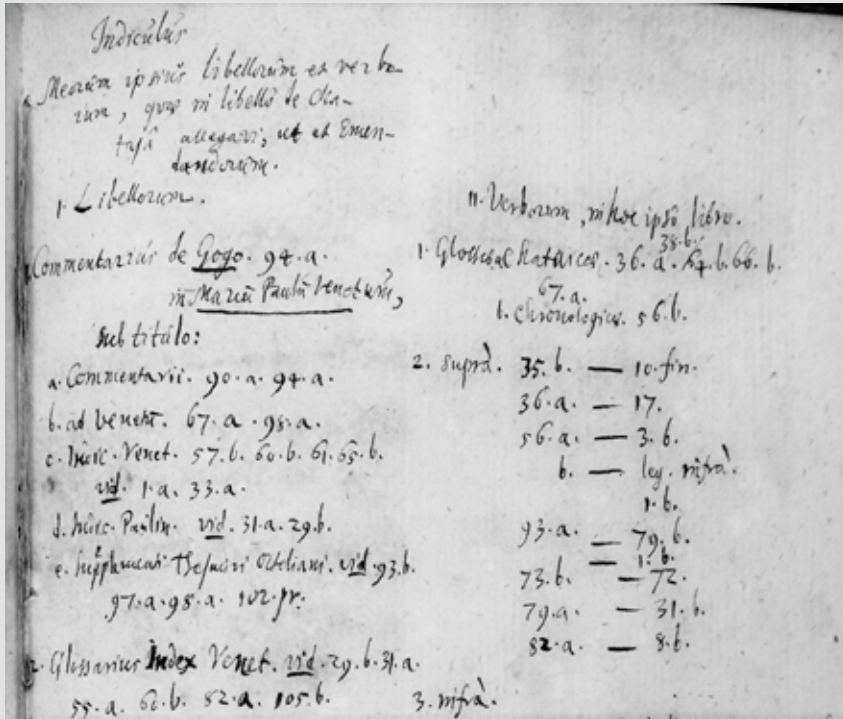 Indiculus
Meorum ipsius libellorum et verbo-
rum, quos in libello de Cha-
tajâ allegavi, ut et Emen-
dandorum.
1. Libellorum.
Commentarius de Gogo. 94.a.
in Marcū Paulū Venetum,
sub titulo:
a. Commentarii. 90.a. 94.a.
b. ad Venet. 67.a. 98.a.
c. Venet. 57.b. 60.b. 61. 65.b.
vid. 1.a. 33.a.
d. Paulin. vid. 31.a. 29.b.
e. Supplement. Thesauri Orteliani. vid. 93.b.
97.a. 98.a. 102. pr.
2. Glossarius Index Venet. vid. 29.b. 31.a.
55.a. 60.b. 82.a. 105.b.
II. Verborum, in hoc ipso libro.
38.b.
1. 36.a. 64.b. 66.b.
67.a.
1. Chronologica. 56.b.
2. suprà. 35.b. — 10. fin.
36.a. — 17.
56.a. — 3.b.
b. — leg. infrà.
1.b.
93.a. — 79.b.
— 1.b.
73.b. — 72.
79.a. — 31.b.
82.a. — 8.b.
3. infrà.